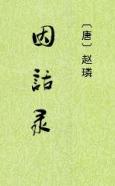 因話录
〔唐〕赵璘